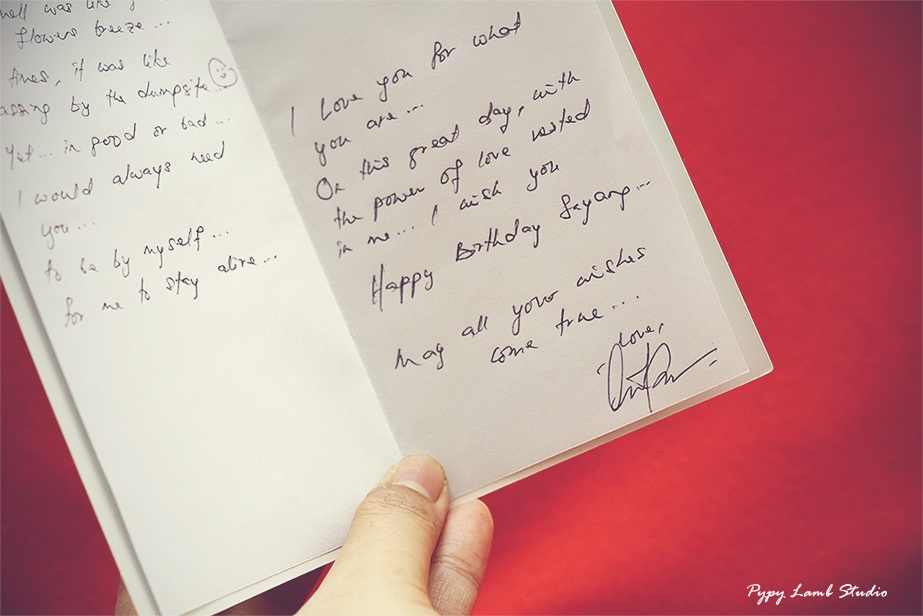 was like
flowers breeze...
times, it was like
by the dumpsite...
Yet... in good or bad...
I would always need
you...
to be by myself...
for me to stay alive...
I Love you for what
you are...
On this great day, with
the power of love vested
in me... I wish you
Happy Birthday Sayang...
May all your wishes
come true...
Love,
Pypy Lamb Studio